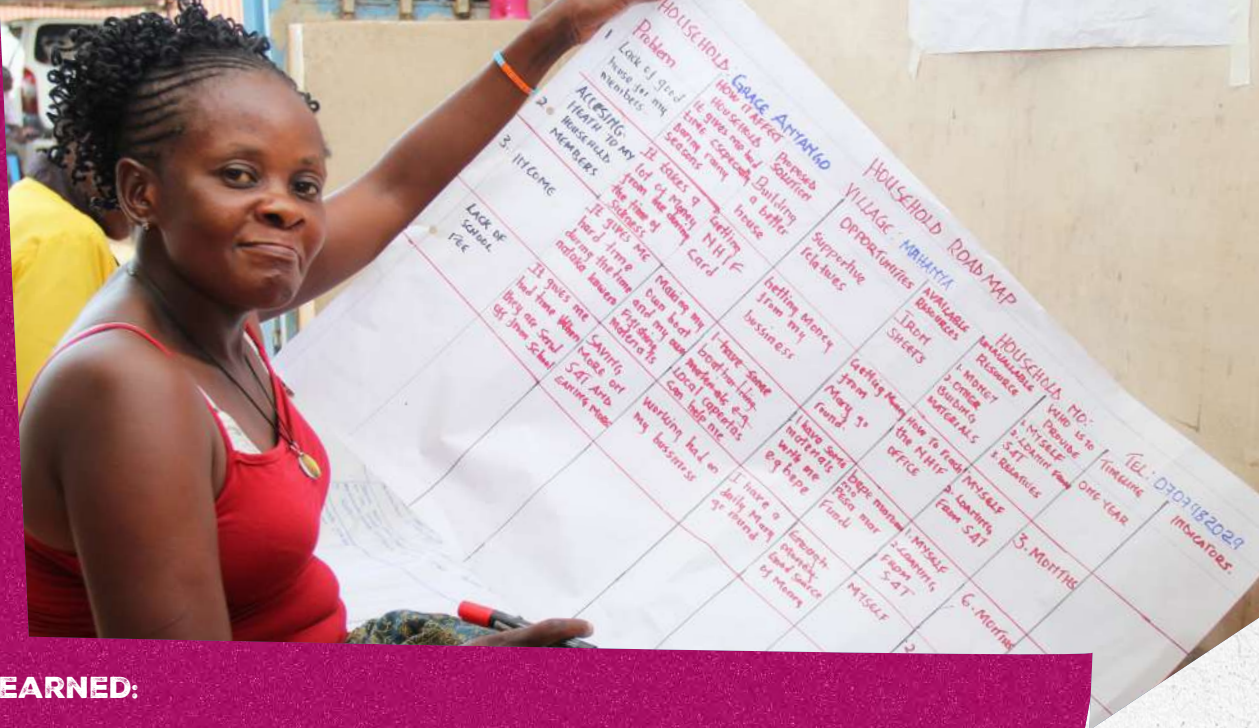 HOUSEHOLD ROAD MAP
HOUSEHOLD: GRACE ANYANGO
VILLAGE: MAHANYA
HOUSEHOLD NO:
TEL: 0707982029
Problem
HOW IT AFFECT
HOUSEHOLD
Proposed
Solution
OPPORTUNITIES
AVAILABLE
RESOURCES
UNAVAILABLE
RESOURCE
WHO IS TO
PROVIDE
TIMELINE
INDICATORS.
1
Lack of good
house for my
members.
It gives me bad
time especially
during rainy
seasons
Building
a better
house
Supportive
relatives
IRON
SHEETS
1. MONEY
2. OTHER
BUILDING
MATERIALS
1. MYSELF
2. LOANING FROM
SAT
RELATIVES
ONE YEAR
2.
ACCESING.
HEATH TO MY
HOUSEHOLD
MEMBERS
It takes a
lot of money
from me during
the time of
sickness.
Getting
NHIF
Card
Getting Money
from my
bussiness
Getting Money
from
Mary go
round
How To Reach
the NHIF
OFFICE
MYSELF
2. LOANING
FROM SAT
3. MONTHS
3. INCOME
It gives me
hard time
during the time
Making my
own boat
and my own
Fishing
Materials
I have some
boat making
materials e.g
Local capentas
can help me
I have some
materials
with me
e.g here
Fundi
1. MYSELF
2. LOANING
FROM
SAT
6. MONTHS
LACK OF
SCHOOL
FEE
It gives me
had time when
they are send
SAVING
MORE ON
SAT AND
working had on
my bossiness
I have a
daily Mary
go round
Enough
money
Good source
of Money
MYSELF
2
EARNED: